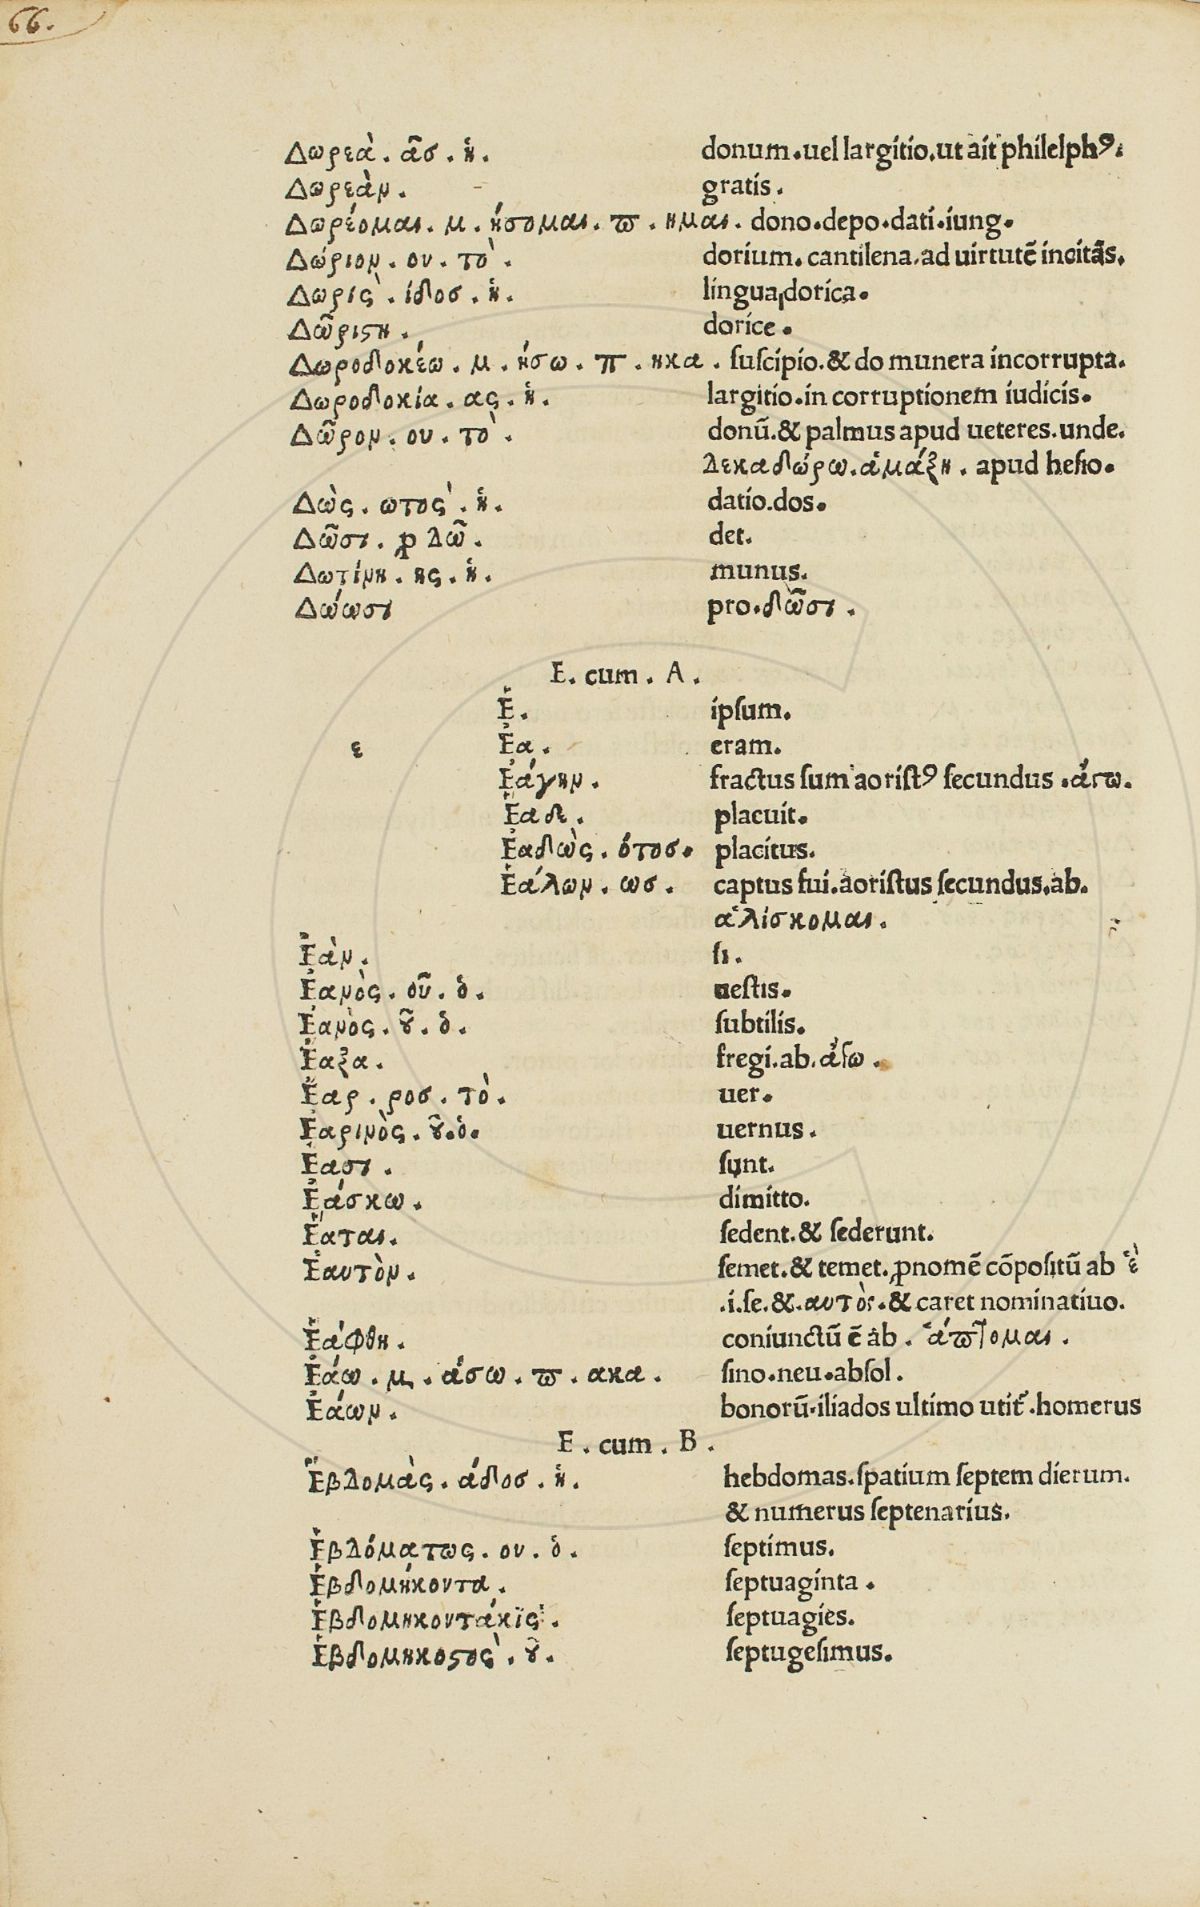 66.
Δωρεὰ . ᾶσ . ἡ . donum.uel largitio.ut ait philelphꝰ.
Δωρεὰν . gratis .
Δωρέομαι . μ . ήσομαι . ϖ . ημαι . dono.depo.dati.iung.
Δώριον . ου . τὸ . dorium. cantilena.ad uirtutē incitās.
Δωρὶς . ίδοσ . ἡ . lingua dorica.
Δῶριϛη . dorice .
Δωροδοκέω . μ . ήσω . π . ηκα . ſuſcipio.& do munera incorrupta.
Δωροδοκία . ας . ἡ . largitio.in corruptionem iudicis.
Δῶρον . ου . τὸ . donū.& palmus apud ueteres.unde.
δεκαδώρω.ἁμάξη . apud heſio.
Δὼς . ωτοσ . ἡ . datio.dos.
Δῶσι . ꝓ δῶ . det.
Δωτίνη . ης . ἡ . munus.
Δώωσι pro.δῶσι .
E. cum . A .
Ἑ . ipſum.
ε Ἔα . eram.
Ἐάγην . fractus ſum aoriſtꝰ ſecundus .ἄγω.
Ἔαδε . placuit.
Ἐαδὼς . ότοσ. placitus.
Ἐάλων . ωσ . captus fui.aoriſtus ſecundus.ab.
ἁλίσκομαι .
Ἐὰν . ſi .
Ἑανὸς . οῦ . ὁ . ueſtis.
Ἑανὸς . ȣ͂ . ὁ . ſubtilis.
Ἔαξα . fregi.ab.ἄξω .
Ἔαρ . ρος . τὸ . uer.
Ἐαρινὸς . ȣ͂.ὁ. uernus .
Ἔασι . ſunt.
Ἐάσκω . dimitto.
Ἕαται. ſedent.& ſederunt.
Ἑαυτὸν . ſemet.& temet.ꝓnomē cōpoſitū ab ἓ
.i.ſe.&.αυτὸς.& caret nominatiuo.
Ἑάφθη . coniunctū ē ab . ἅϖτομαι .
Ἐάω . μ . άσω . ϖ . ακα . ſino.neu.abſol .
Ἐάων . bonorū.iliados ultimo utit᷑ .homerus
E . cum . B .
Ἑβδομὰς . άδοσ . ἡ . hebdomas.ſpatium ſeptem dierum.
& numerus ſeptenarius.
Ἑβδόματως . ου . ὁ . ſeptimus.
Ἑβδομήκοντα . ſeptuaginta .
Ἑβδομηκοντάκις . ſeptuagies.
Ἑβδομηκοϛὸς . ȣ͂ . ſeptugeſimus.